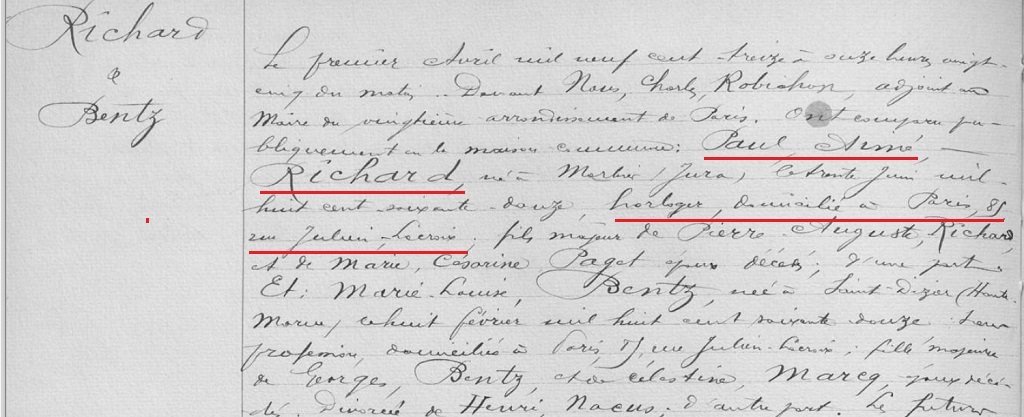 Richard
&
Bentz
Le premier Avril mil neuf cent treize à onze heures vingt-
cinq du matin. Devant Nous, Charles, Robichon, adjoint au
Maire du vingtième arrondissement de Paris. Ont comparu pu-
bliquement en la maison commune: Paul, Aimé, —
Richard, né à Morbier (Jura) le trente Juin mil
huit cent soixante douze, horloger, domicilié à Paris, 85
rue Julien-Lacroix; fils majeur de Pierre Auguste, Richard
et de Marie, Césarine Paget époux décédés; d'une part
Et: Marie-Louise, Bentz, née à Saint-Dizier (Haute-
Marne) le huit février mil huit cent soixante douze sans
profession, domiciliée à Paris 85, rue Julien-Lacroix; fille majeure
de Georges, Bentz, et de Célestine, Marcq, époux décé-
dés. Divorcée de Henri, Nacus. d'autre part. Les futurs